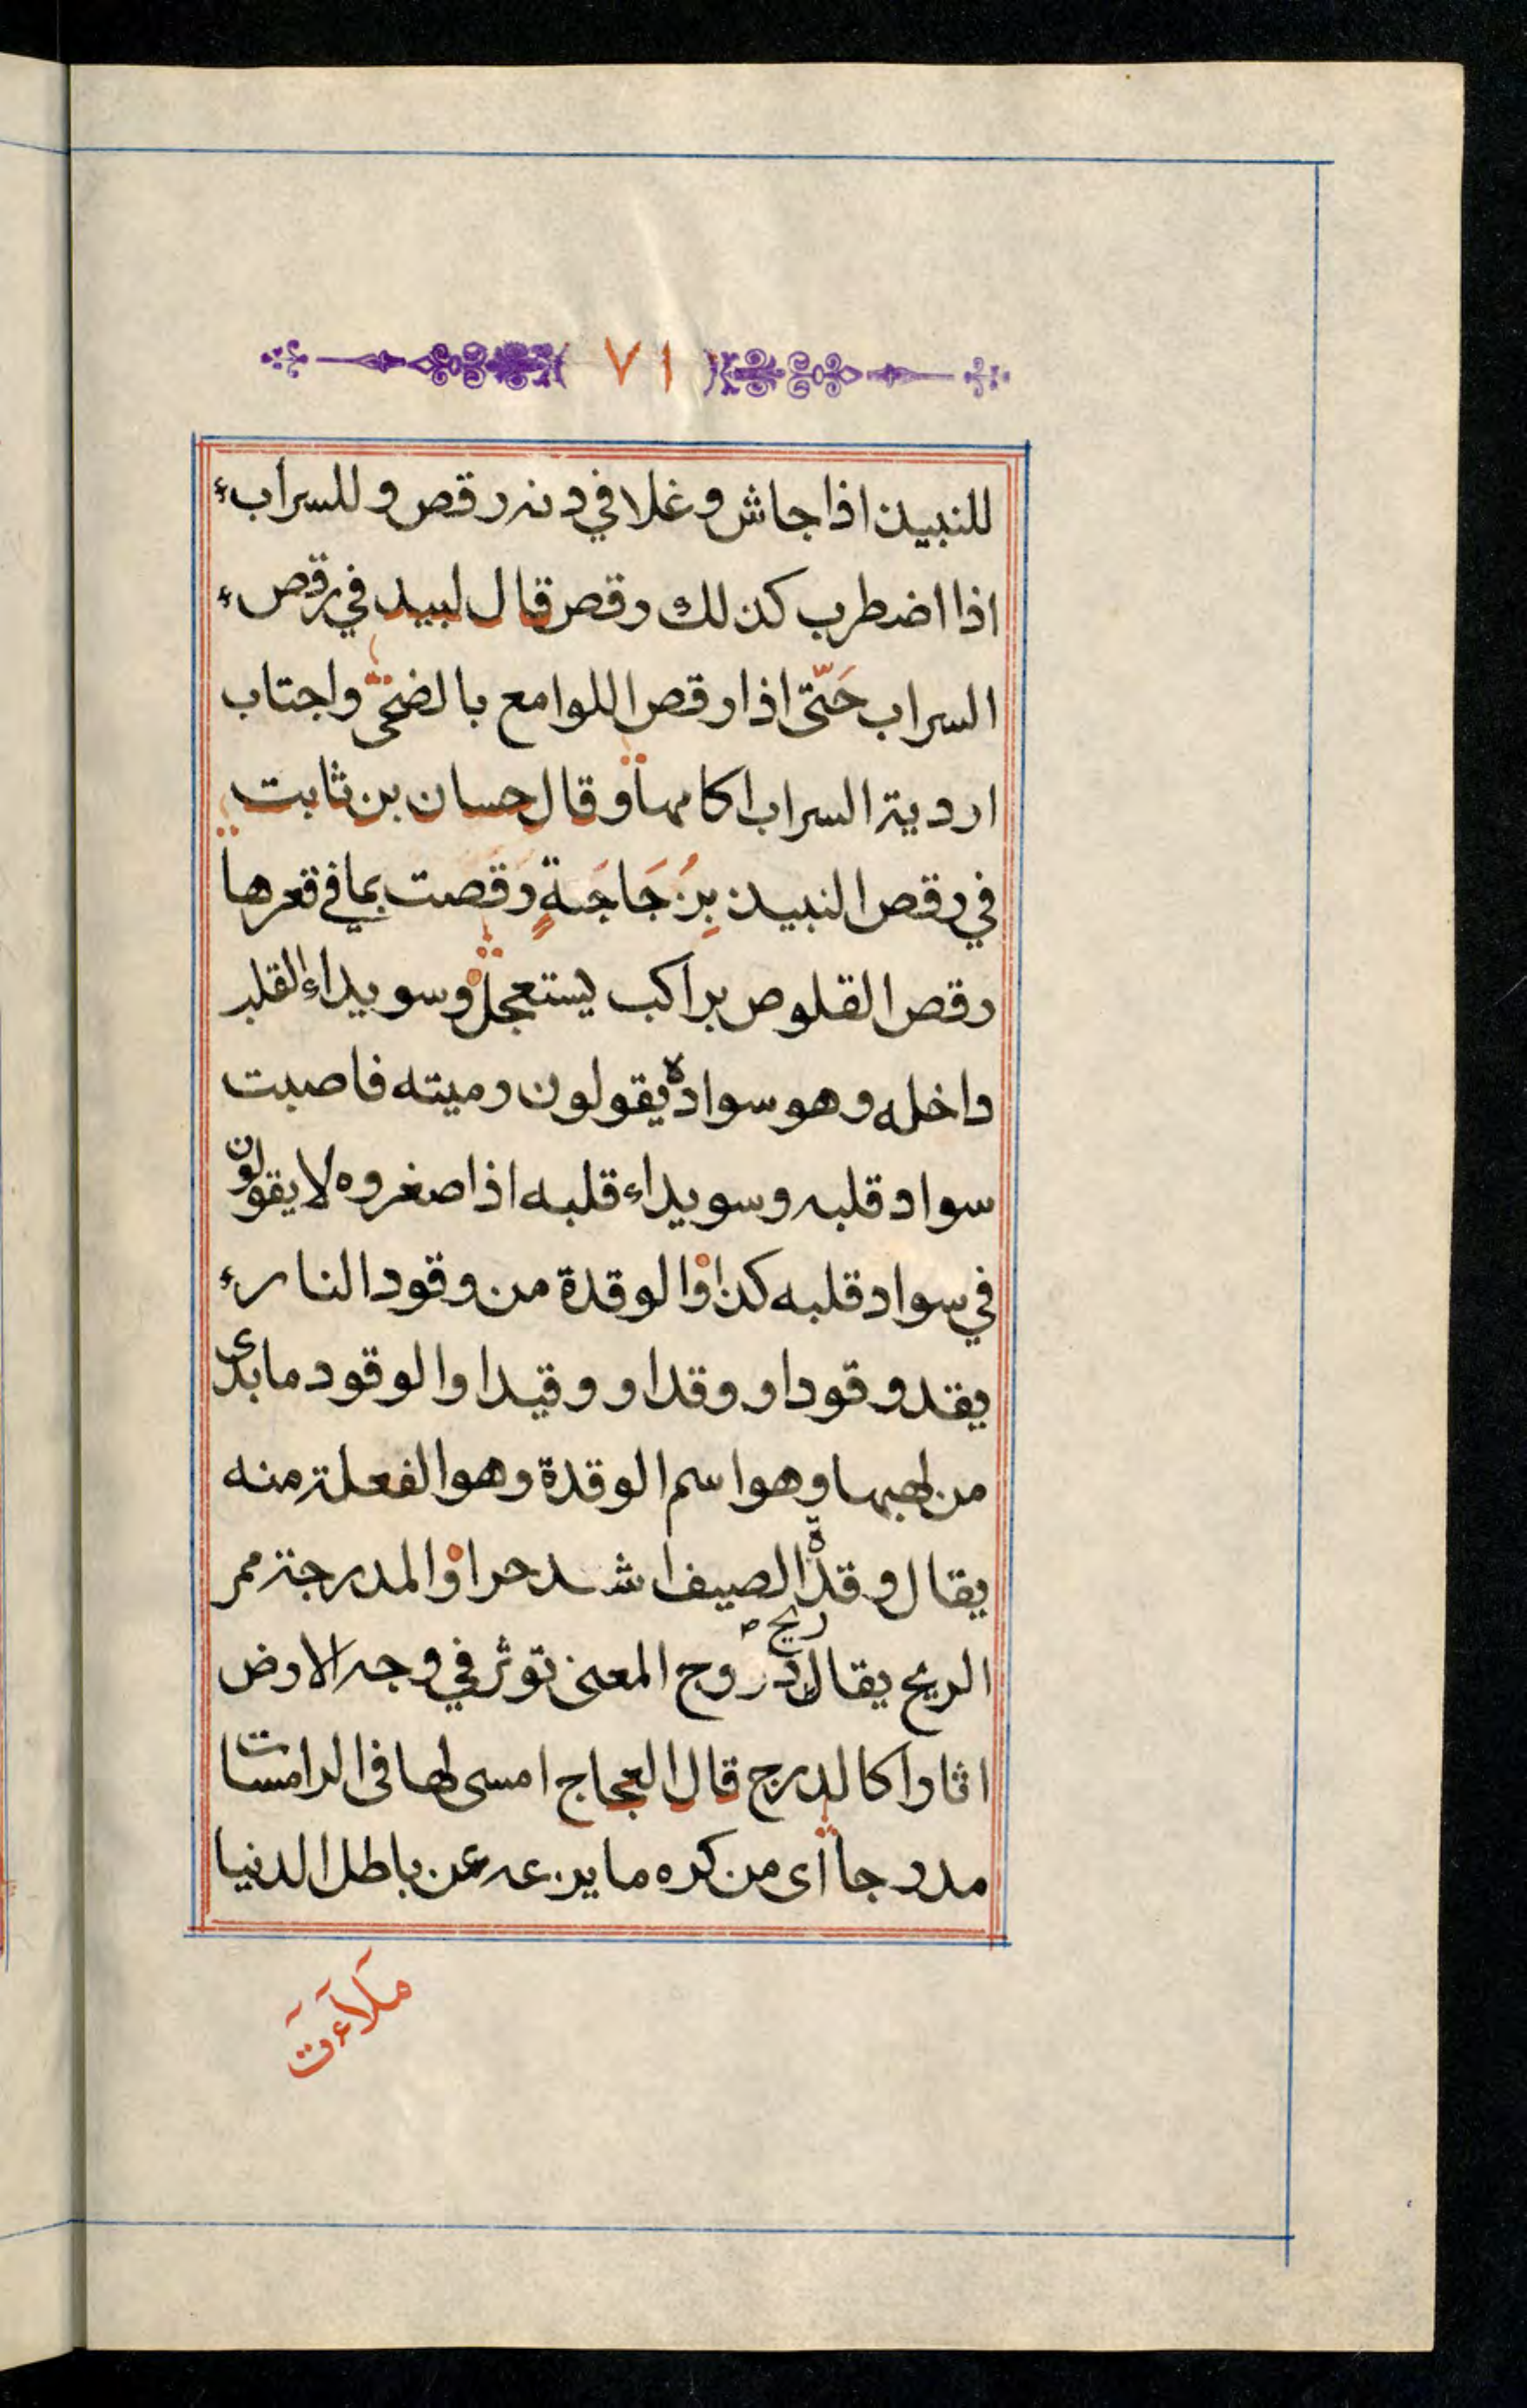 ٧١
للنبيذ اذا جاش وغلا في دنه رقص وللسراب
اذا اضطرب كذلك رقص قال لبيد في رقص
السراب حَتّى اذا رقص اللوامع بالضحى واجتاب
اردية السراب اكامها وقال حسان بن ثابت
في رقص النبيذ بِزُجَاجَةٍ رَقَصَت بما في قعرها
رقص القلوص براكب يستعجل وسويداء القلب
داخله وهو سواده يقولون رميته فاصبت
سواد قلبه وسويداء قلبه اذا صغروه لا يقولون
في سواد قلبه كذا والوقدة من وقود النار
يقد وقودا ووقدا ووقيدا والوقود ما بدى
من لهبها وهو اسم الوقدة وهو الفعلة منه
يقال وقدة الصيف اشد حرا والمدرجة ممر
الريح يقال ريح دروج المعنى توثر في وجه الارض
اثارا كالدرج قال العجاج امسى لها في الرامسات
مدرجا اى من كره ما يزعه عن باطل الدنيا
ملاءت